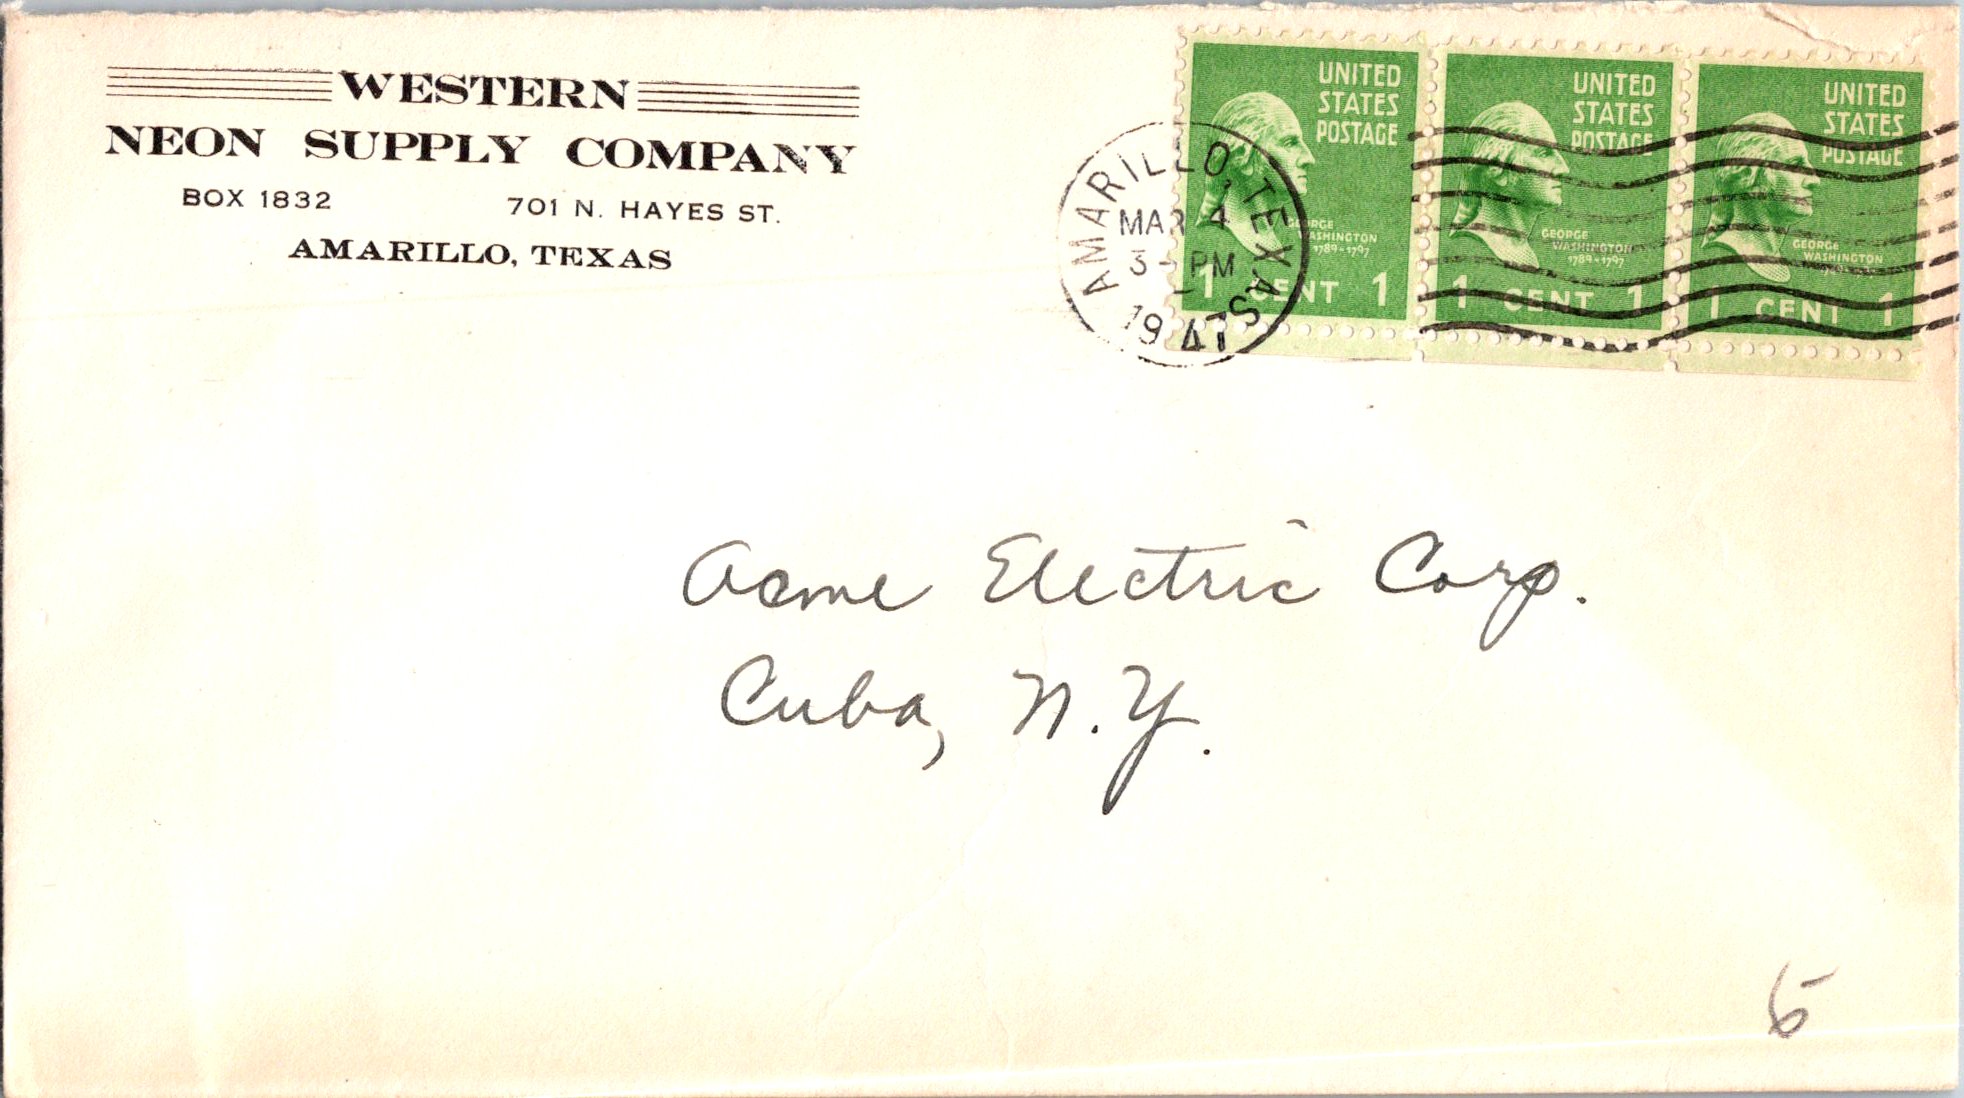 WESTERN
NEON SUPPLY COMPANY
BOX 1832 701 N. HAYES ST.
AMARILLO, TEXAS
AMARILLO, TEXAS
MAR 4
3 - PM
1947
UNITED
STATES
POSTAGE
GEORGE
WASHINGTON
1789-1797
1 CENT 1
UNITED
STATES
POSTAGE
GEORGE
WASHINGTON
1789-1797
1 CENT 1
UNITED
STATES
POSTAGE
GEORGE
WASHINGTON
1 CENT 1
Acme Electric Corp.
Cuba, N.Y.
5